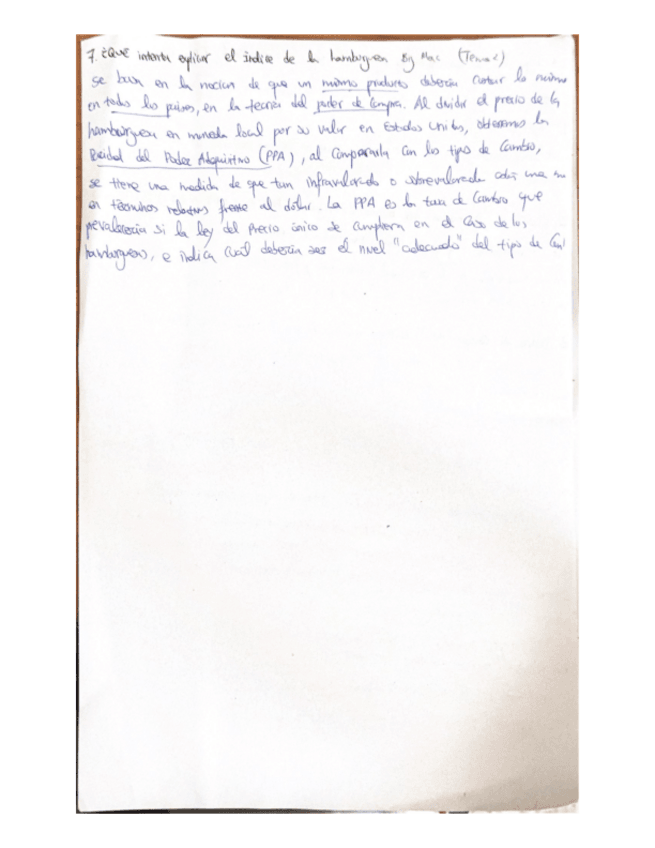 7. ¿Qué intenta explicar el índice de la hamburguesa Big Mac (Tema 2)
se basa en la nocion de que un mismo producto deberia costar lo mismo
en todos los paises, en la teoria del poder de compra. Al dividir el precio de la
hamburguesa en moneda local por su valor en Estados Unidos, obtenemos la
Paridad del Poder Adquisitivo (PPA), al compararla con los tipos de Cambio,
se tiene una medida de que tan infravalorado o sobrevalorada está una
en términos relativos frente al dólar. La PPA es la tasa de Cambio que
prevalecería si la ley del Precio único se cumpliera en el Caso de las
hamburguesas, e indica cuál debería ser el nivel "adecuado" del tipo de